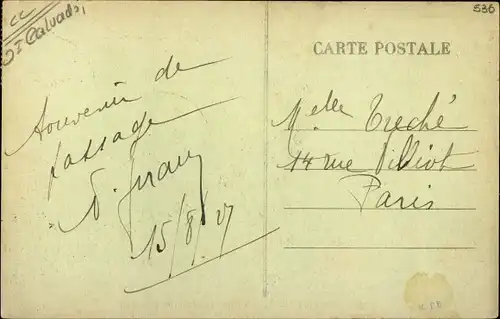 cc
Calvados
536
CARTE POSTALE
Souvenir de
passage
15/8/27
Melle Treché
14 rue Villiot
Paris